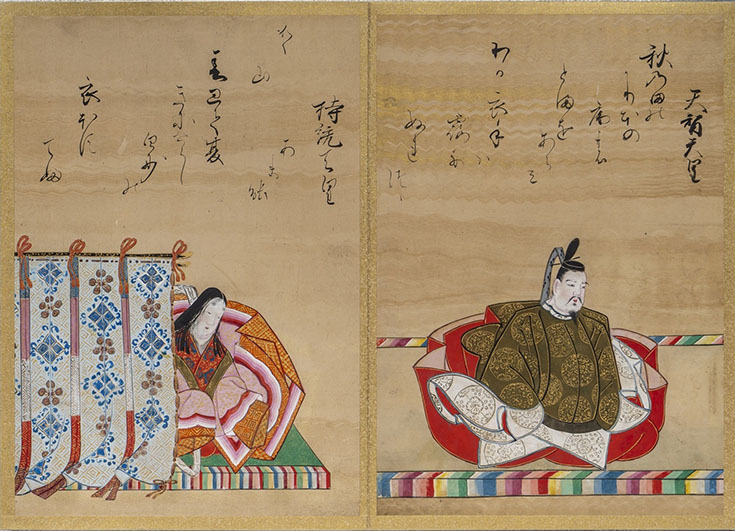 天智天皇
秋乃田の
かりほの
庵の
とまを
あらミ
わか衣手ハ
露に
ぬれ
つゝ
持統天皇
春過て夏
きにけらし
白妙の
衣ほす
てふ
あまの
山